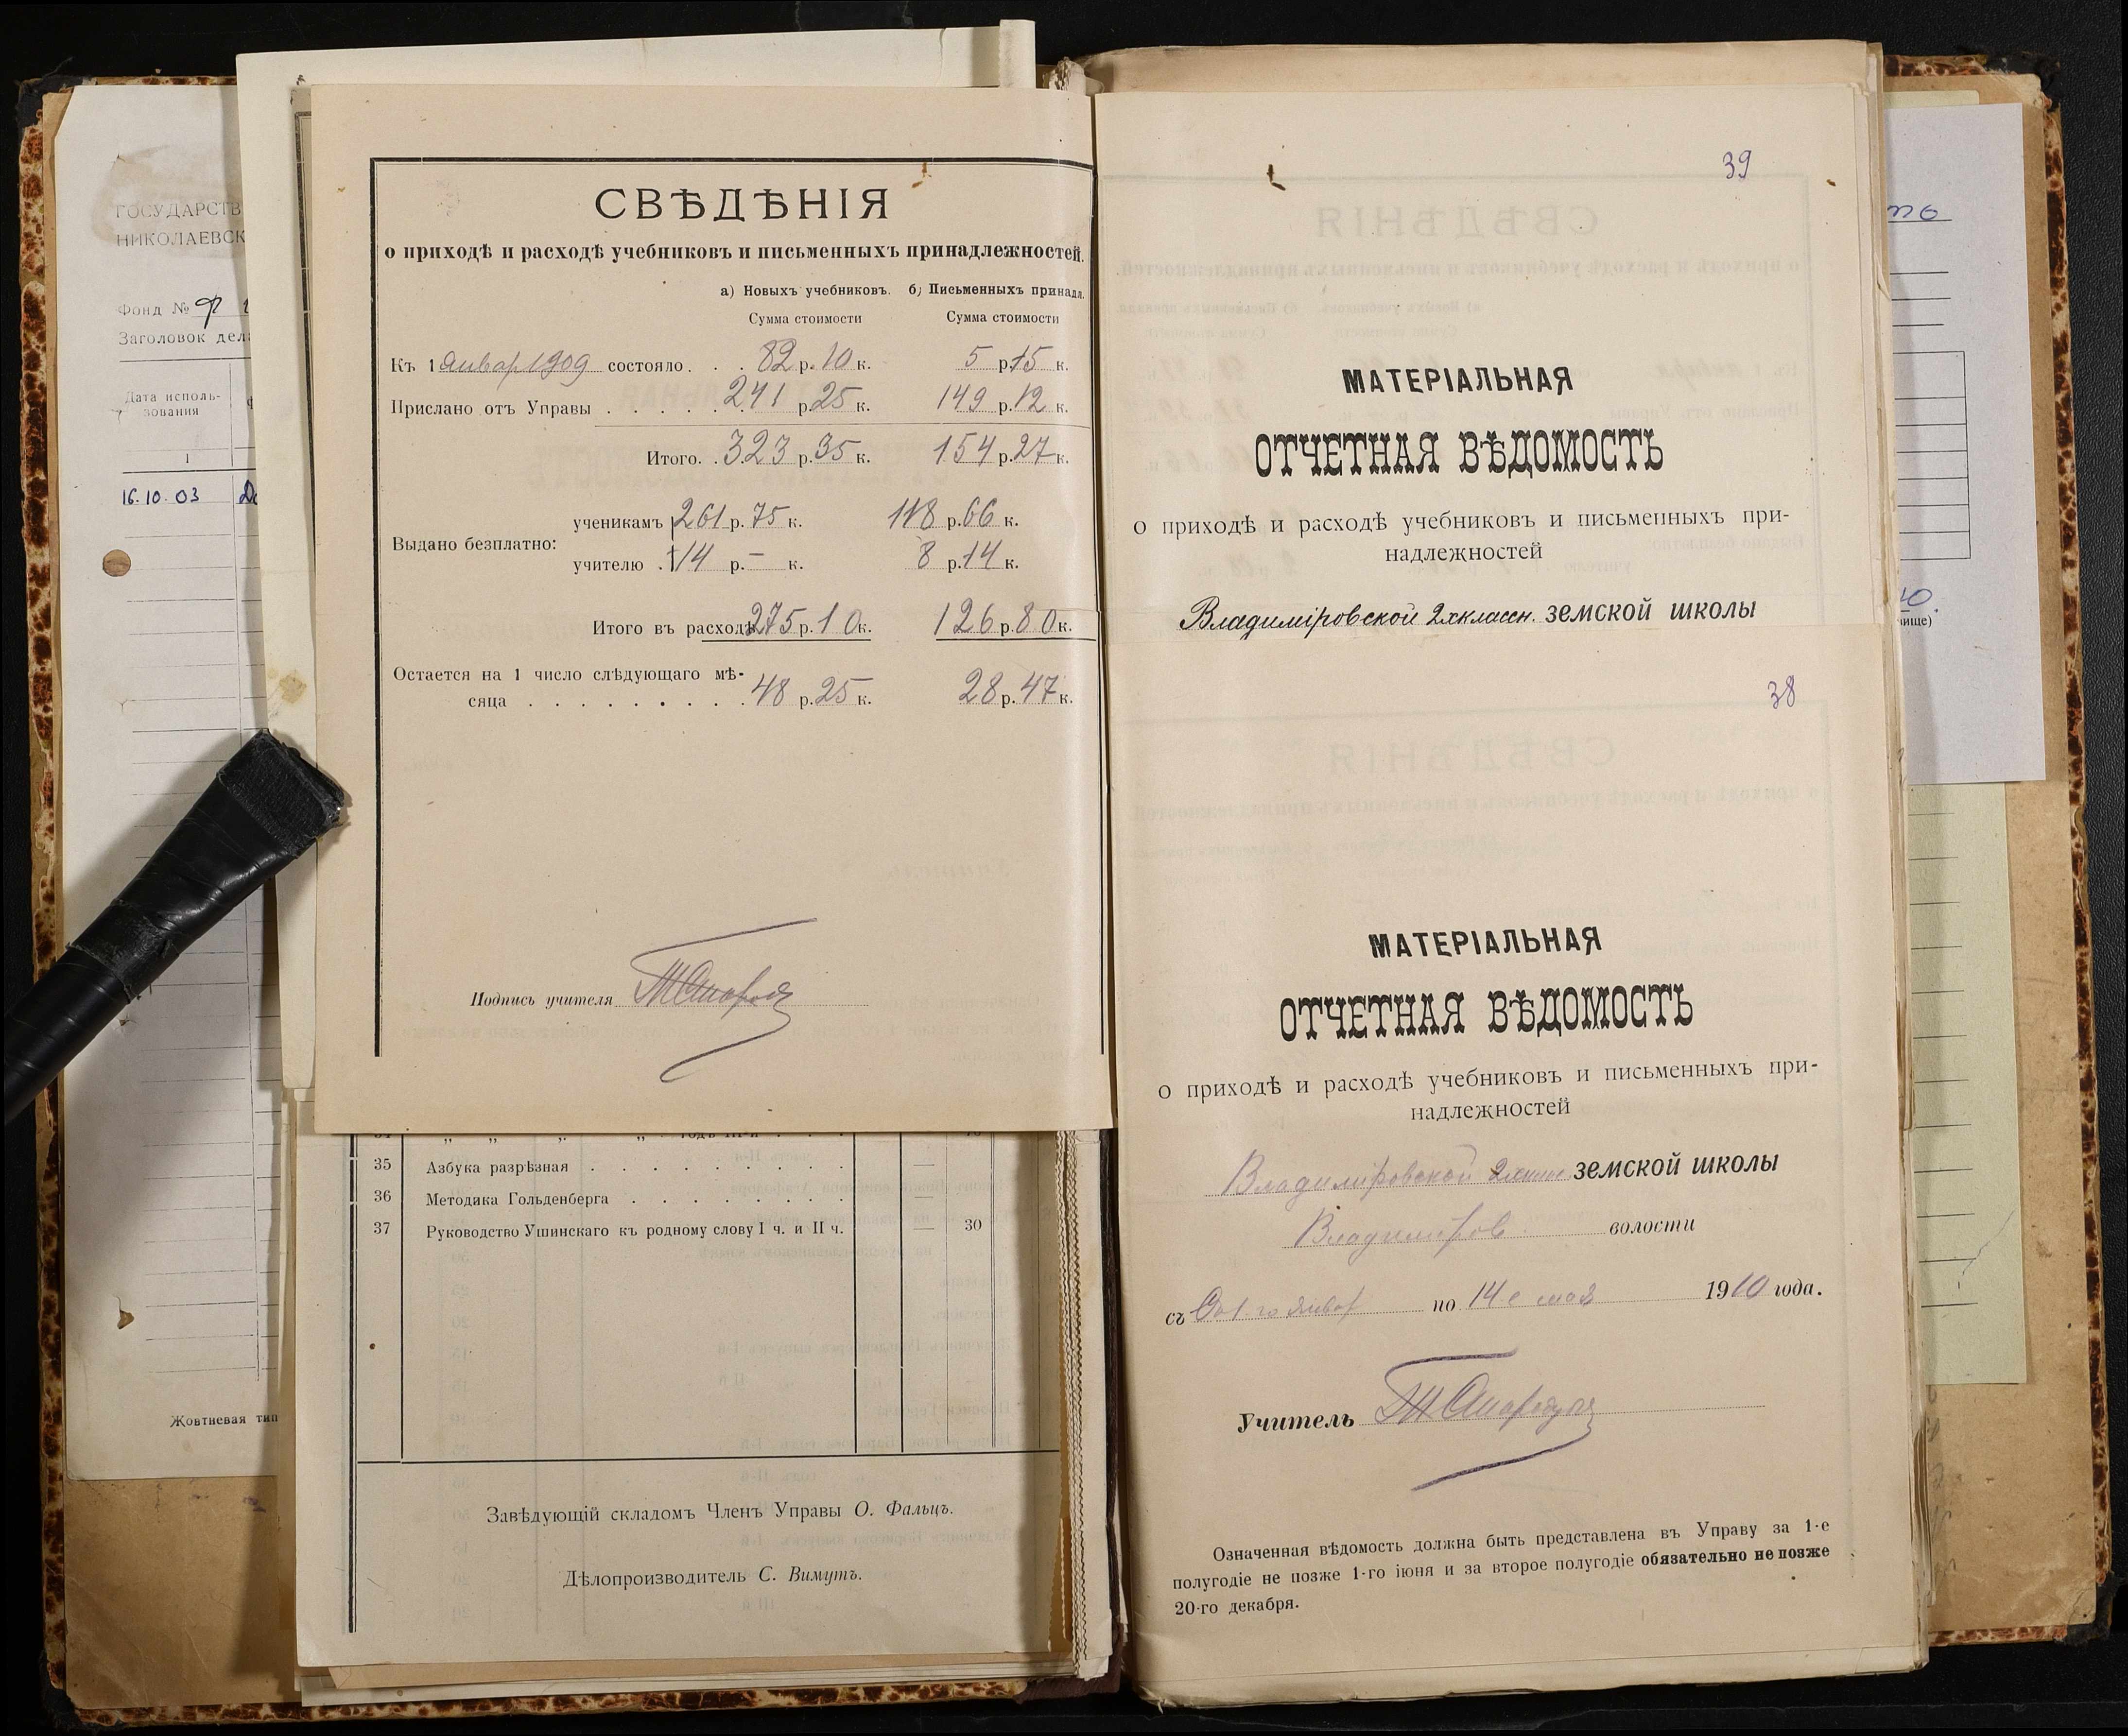 ГОСУДАРСТВ
НИКОЛАЕВСК
Фонд №
Заголовок дел
Дата исполь-
зования
1
16.10.03
Жовтневая тип
СВѢДѢНІЯ
о приходѣ и расходѣ учебниковъ и письменныхъ принадлежностей.
а) Новыхъ учебниковъ. б) Письменныхъ принадл.
Сумма стоимости Сумма стоимости
Къ 1 Январ 1909 состояло. . . 82 р. 10 к. 5 р. 15 к.
Прислано отъ Управы . . . . . . . 241 р. 25 к. 149 р. 12 к.
Итого. . 323 р. 35 к. 154 р. 27 к.
Выдано безплатно:
ученикамъ 261 р. 75 к. 118 р. 66 к.
учителю . 14 р. – к. 8 р. 14 к.
Итого въ расходѣ 275 р. 10 к. 126 р. 80 к.
Остается на 1 число слѣдующаго мѣ-
сяца . . . . . . . . . . 48 р. 25 к. 28 р. 47 к.
Подпись учителя
35 Азбука разрѣзная . . . . . . . . . —
36 Методика Гольденберга . . . . . . . . —
37 Руководство Ушинскаго къ родному слову I ч. и II ч. — 30
Завѣдующій складомъ Членъ Управы О. Фальцъ.
Дѣлопроизводитель С. Вимутъ.
39
МАТЕРІАЛЬНАЯ
ОТЧЕТНАЯ ВѢДОМОСТЬ
о приходѣ и расходѣ учебниковъ и письменныхъ при-
надлежностей
Владиміровской 2хклассн. земской школы
38
МАТЕРІАЛЬНАЯ
ОТЧЕТНАЯ ВѢДОМОСТЬ
о приходѣ и расходѣ учебниковъ и письменныхъ при-
надлежностей
Владиміровской земской школы
Владиміров волости
съ 1-го Январ по 14 е мая 1910 года.
Учитель
Означенная вѣдомость должна быть представлена въ Управу за 1-е
полугодіе не позже 1-го іюня и за второе полугодіе обязательно не позже
20-го декабря.